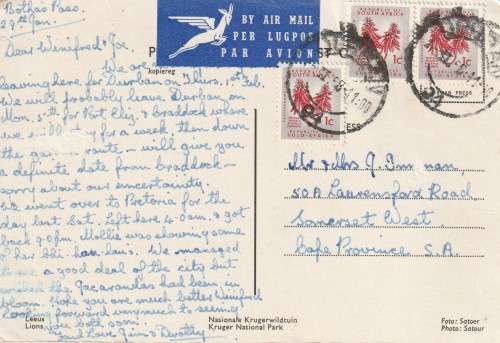 Bothas Pass.
29th Jan.
Dear Winifred & Joe,
We are
leaving here for Durban on Thurs. 1st Feb.
We will probably leave Durban on
Mon. 5th for Port Eliz. & Craddock where
we will stay for a week then down
the garden route – will give you
a definite date from Craddock –
sorry about our uncertainty.
We went over to Pretoria for the
day last Sat. Left here 4.0am. & got
back 9.0pm. Mollie was showing some
of her We managed
to see a good deal of the city but
wished the Jacarandas had been in
bloom. Hope you are much better Winifred
Looking forward very much to seeing
you both soon.
Love Jim & Dorothy
Leeus
Lions
Nasionale Krugerwildtuin
Kruger National Park
kopiereg
BY AIR MAIL
PER LUGPOS
PAR AVION
REPUBLIC OF
SOUTH AFRICA
1c
REPUBLIEK VAN
SUID-AFRIKA
1c
1c
Mr & Mrs J.
50A Laurensford Road
Somerset West,
Cape Province S.A.
Foto: Satoer
Photo: Satour